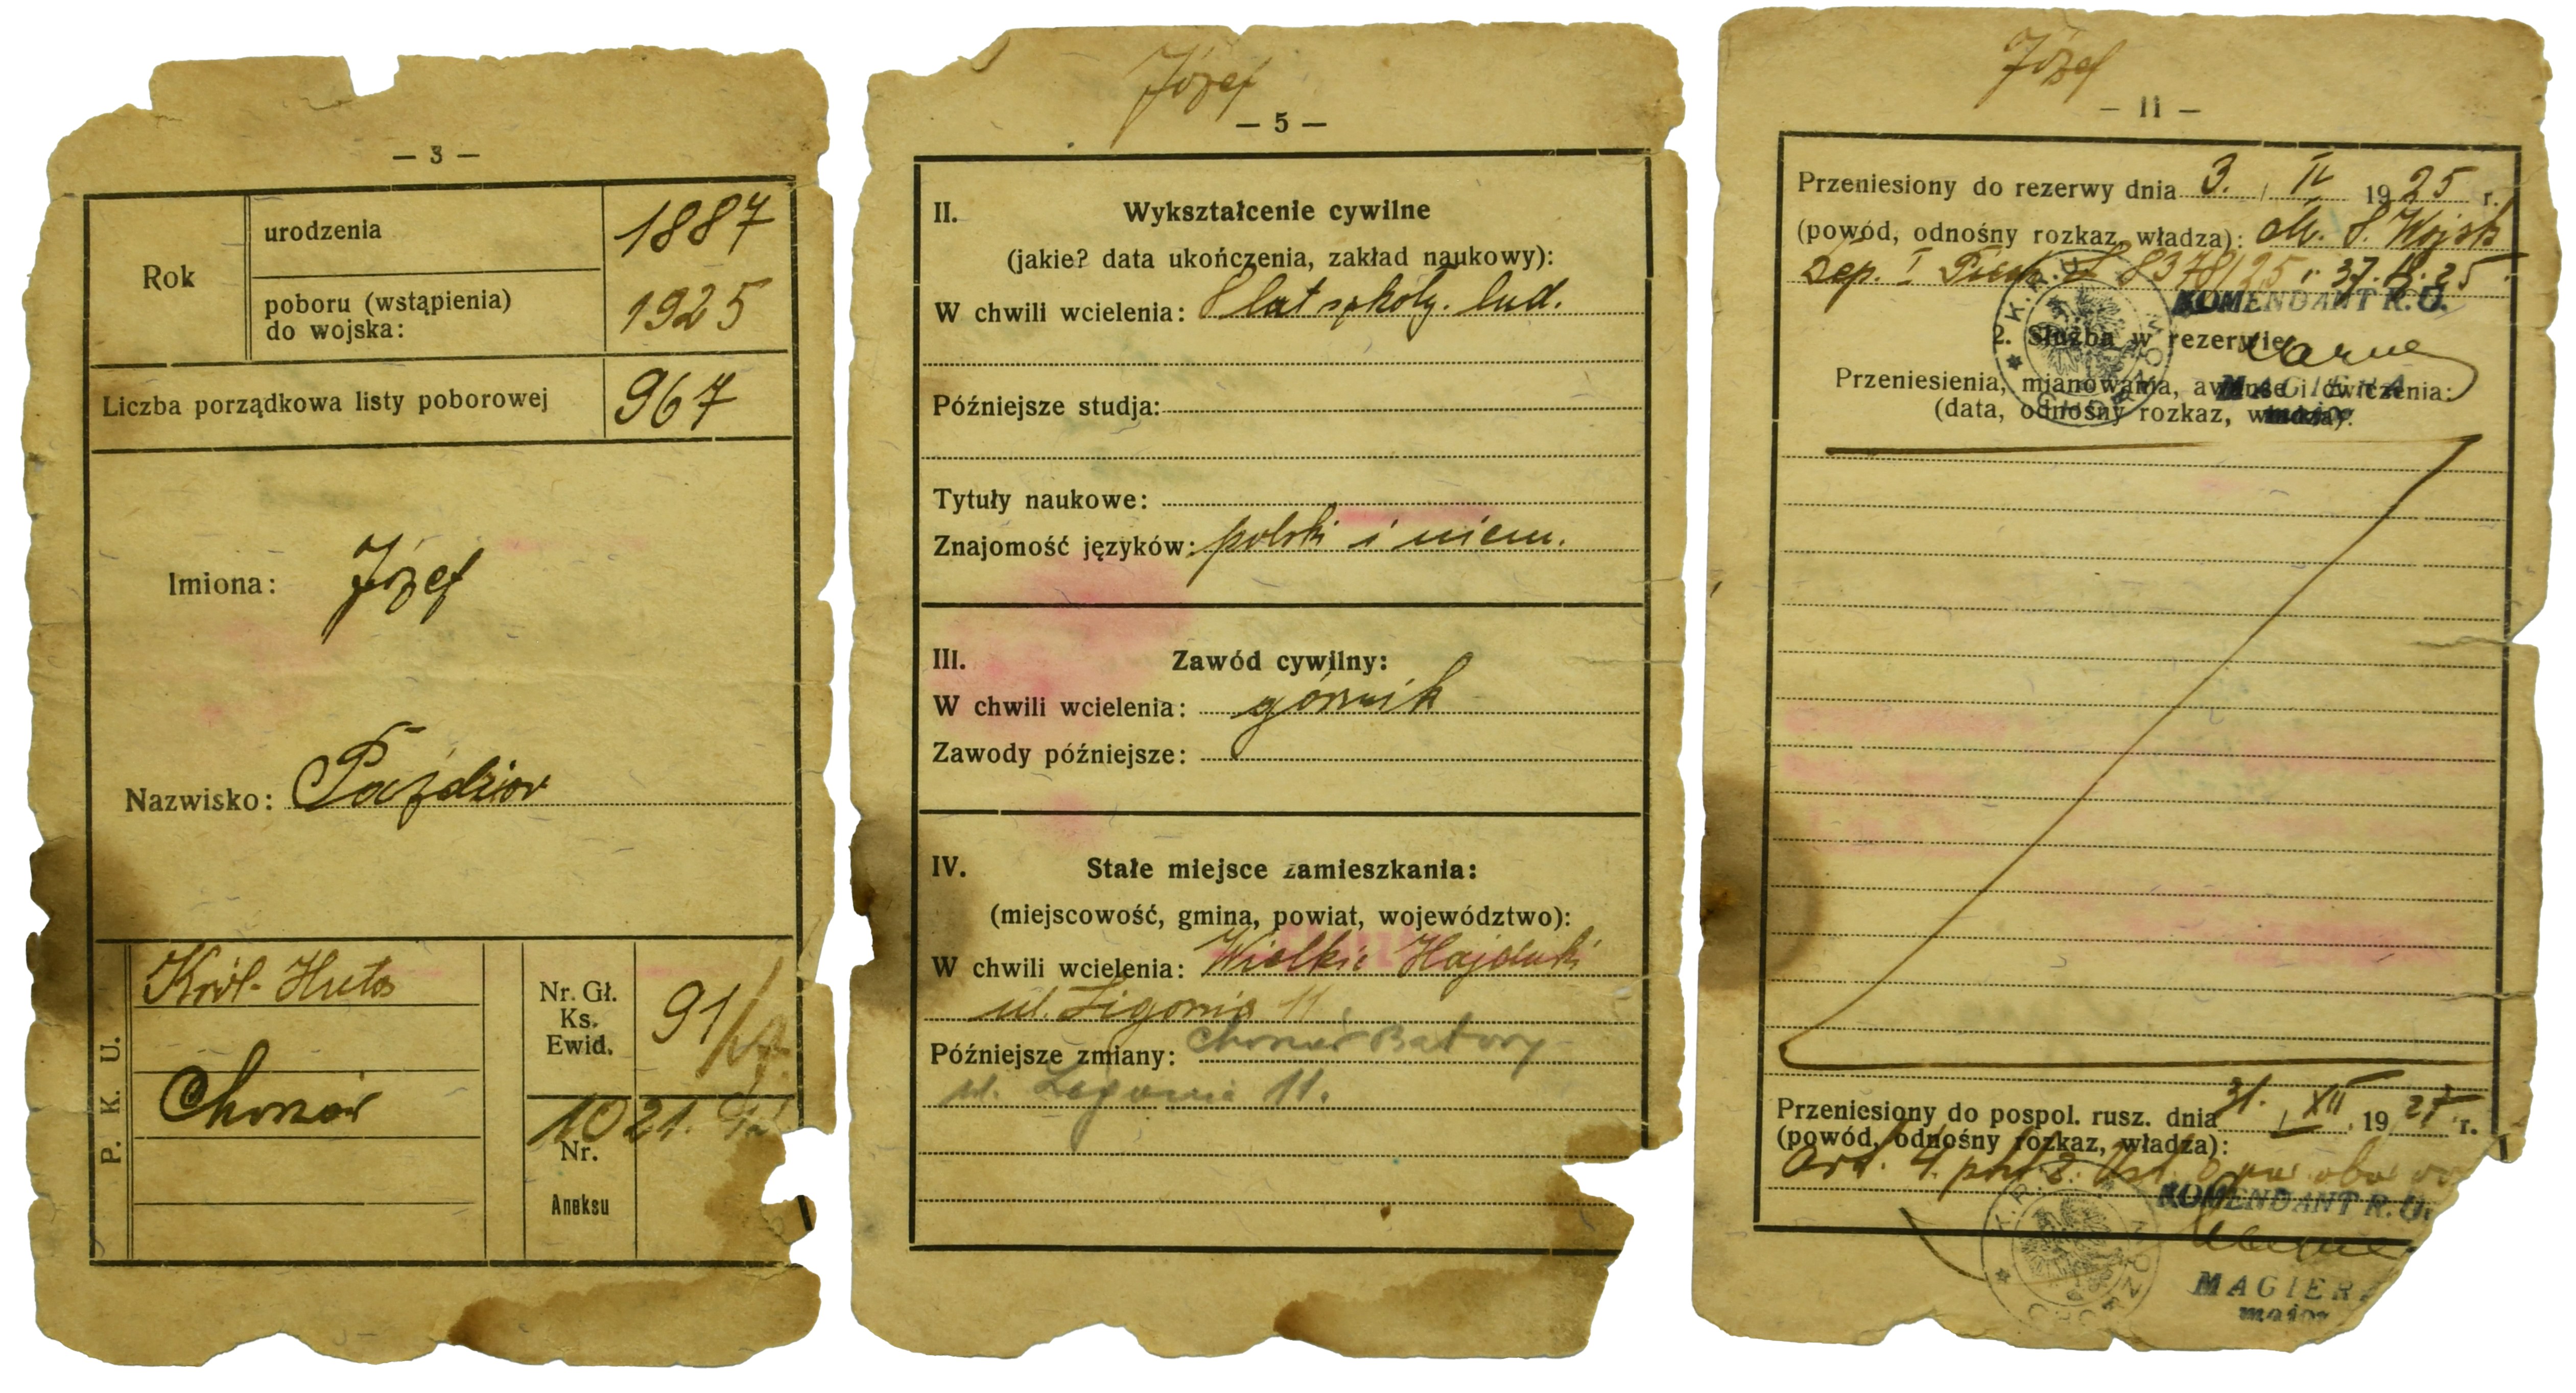 — 3 —
Rok
urodzenia
1887
poboru (wstąpienia)
do wojska:
1925
Liczba porządkowa listy poborowej
967
Imiona: Józef
Nazwisko: Paździor
P. K. U.
Król. Huta
Chorzów
Nr. Gł.
Ks.
Ewid.
91/
1021.
Nr.
Aneksu
Józef
— 5 —
II. Wykształcenie cywilne
(jakie? data ukończenia, zakład naukowy):
W chwili wcielenia: 8 lat szkoły. lud.
Późniejsze studja:
Tytuły naukowe:
Znajomość języków: polski i niem.
III. Zawód cywilny:
W chwili wcielenia: górnik
Zawody późniejsze:
IV. Stałe miejsce zamieszkania:
(miejscowość, gmina, powiat, województwo):
W chwili wcielenia: Wielkie Hajduki
ul. Ligonia 11
Późniejsze zmiany: Chorzów Batory
ul. Ligonia 11.
Józef
— 11 —
Przeniesiony do rezerwy dnia 3. IV 1925 r.
(powód, odnośny rozkaz, władza): M. S. Wojsk
Dep. I Piech. L 8378/25
KOMENDANT R. U.
2. Służba w rezerwie
Przeniesienia, mianowania, awanse i ćwiczenia:
MAGIERA
(data, odnośny rozkaz, władza):
major
Przeniesiony do pospol. rusz. dnia 31. XII 1927 r.
(powód, odnośny rozkaz, władza):
Art. 4. pkt 2. Ust. o pow. obow.
KOMENDANT R. U.
MAGIER
major